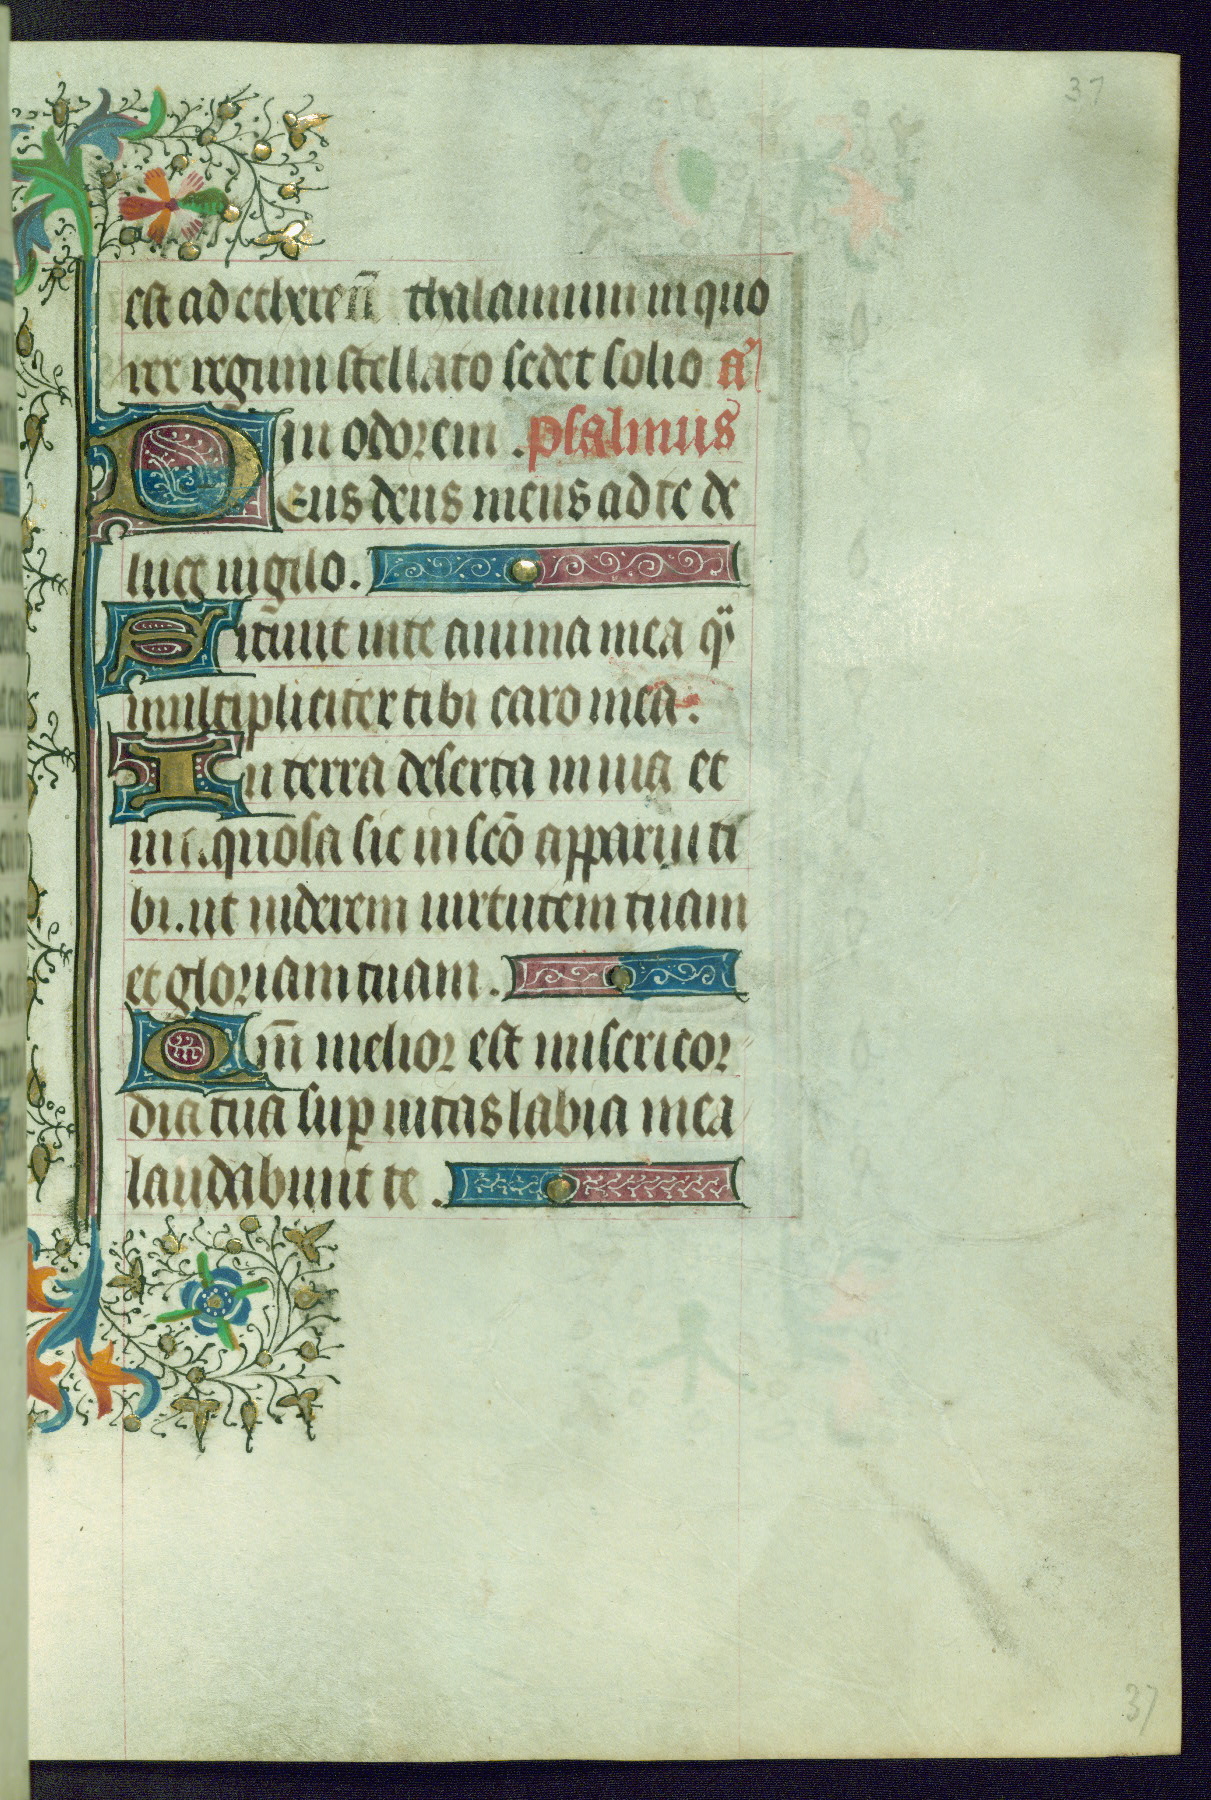 37
est ad ethereū thalamum in quo
rex regum stellato sedet solio a͛
In odorem . psalmus
DEus deus meus ad te de
luce uigilo.
Sitiuit in te anima mea q̈
multipliciter tibi caro mea.
In terra deserta inuia et
inaquosa sic in scō apparui ti
bi. ut uiderem uirtutem tuam
et gloriam tuam.
Qm̄ melior est misericor
dia tua sup uitas labia mea
laudabunt te .
37